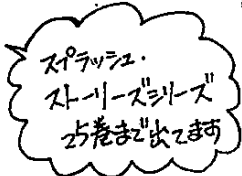 スプラッシュ・
ストーリーズシリーズ
25巻まで出てます